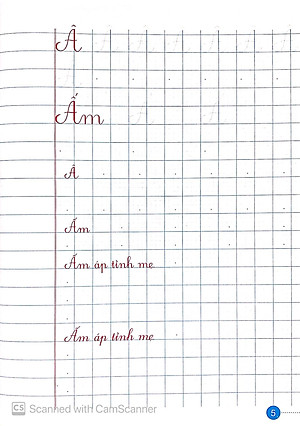 Â
Ấm
Â
Ấm
Ấm áp tình mẹ
Ấm áp tình mẹ
5
CS Scanned with CamScanner